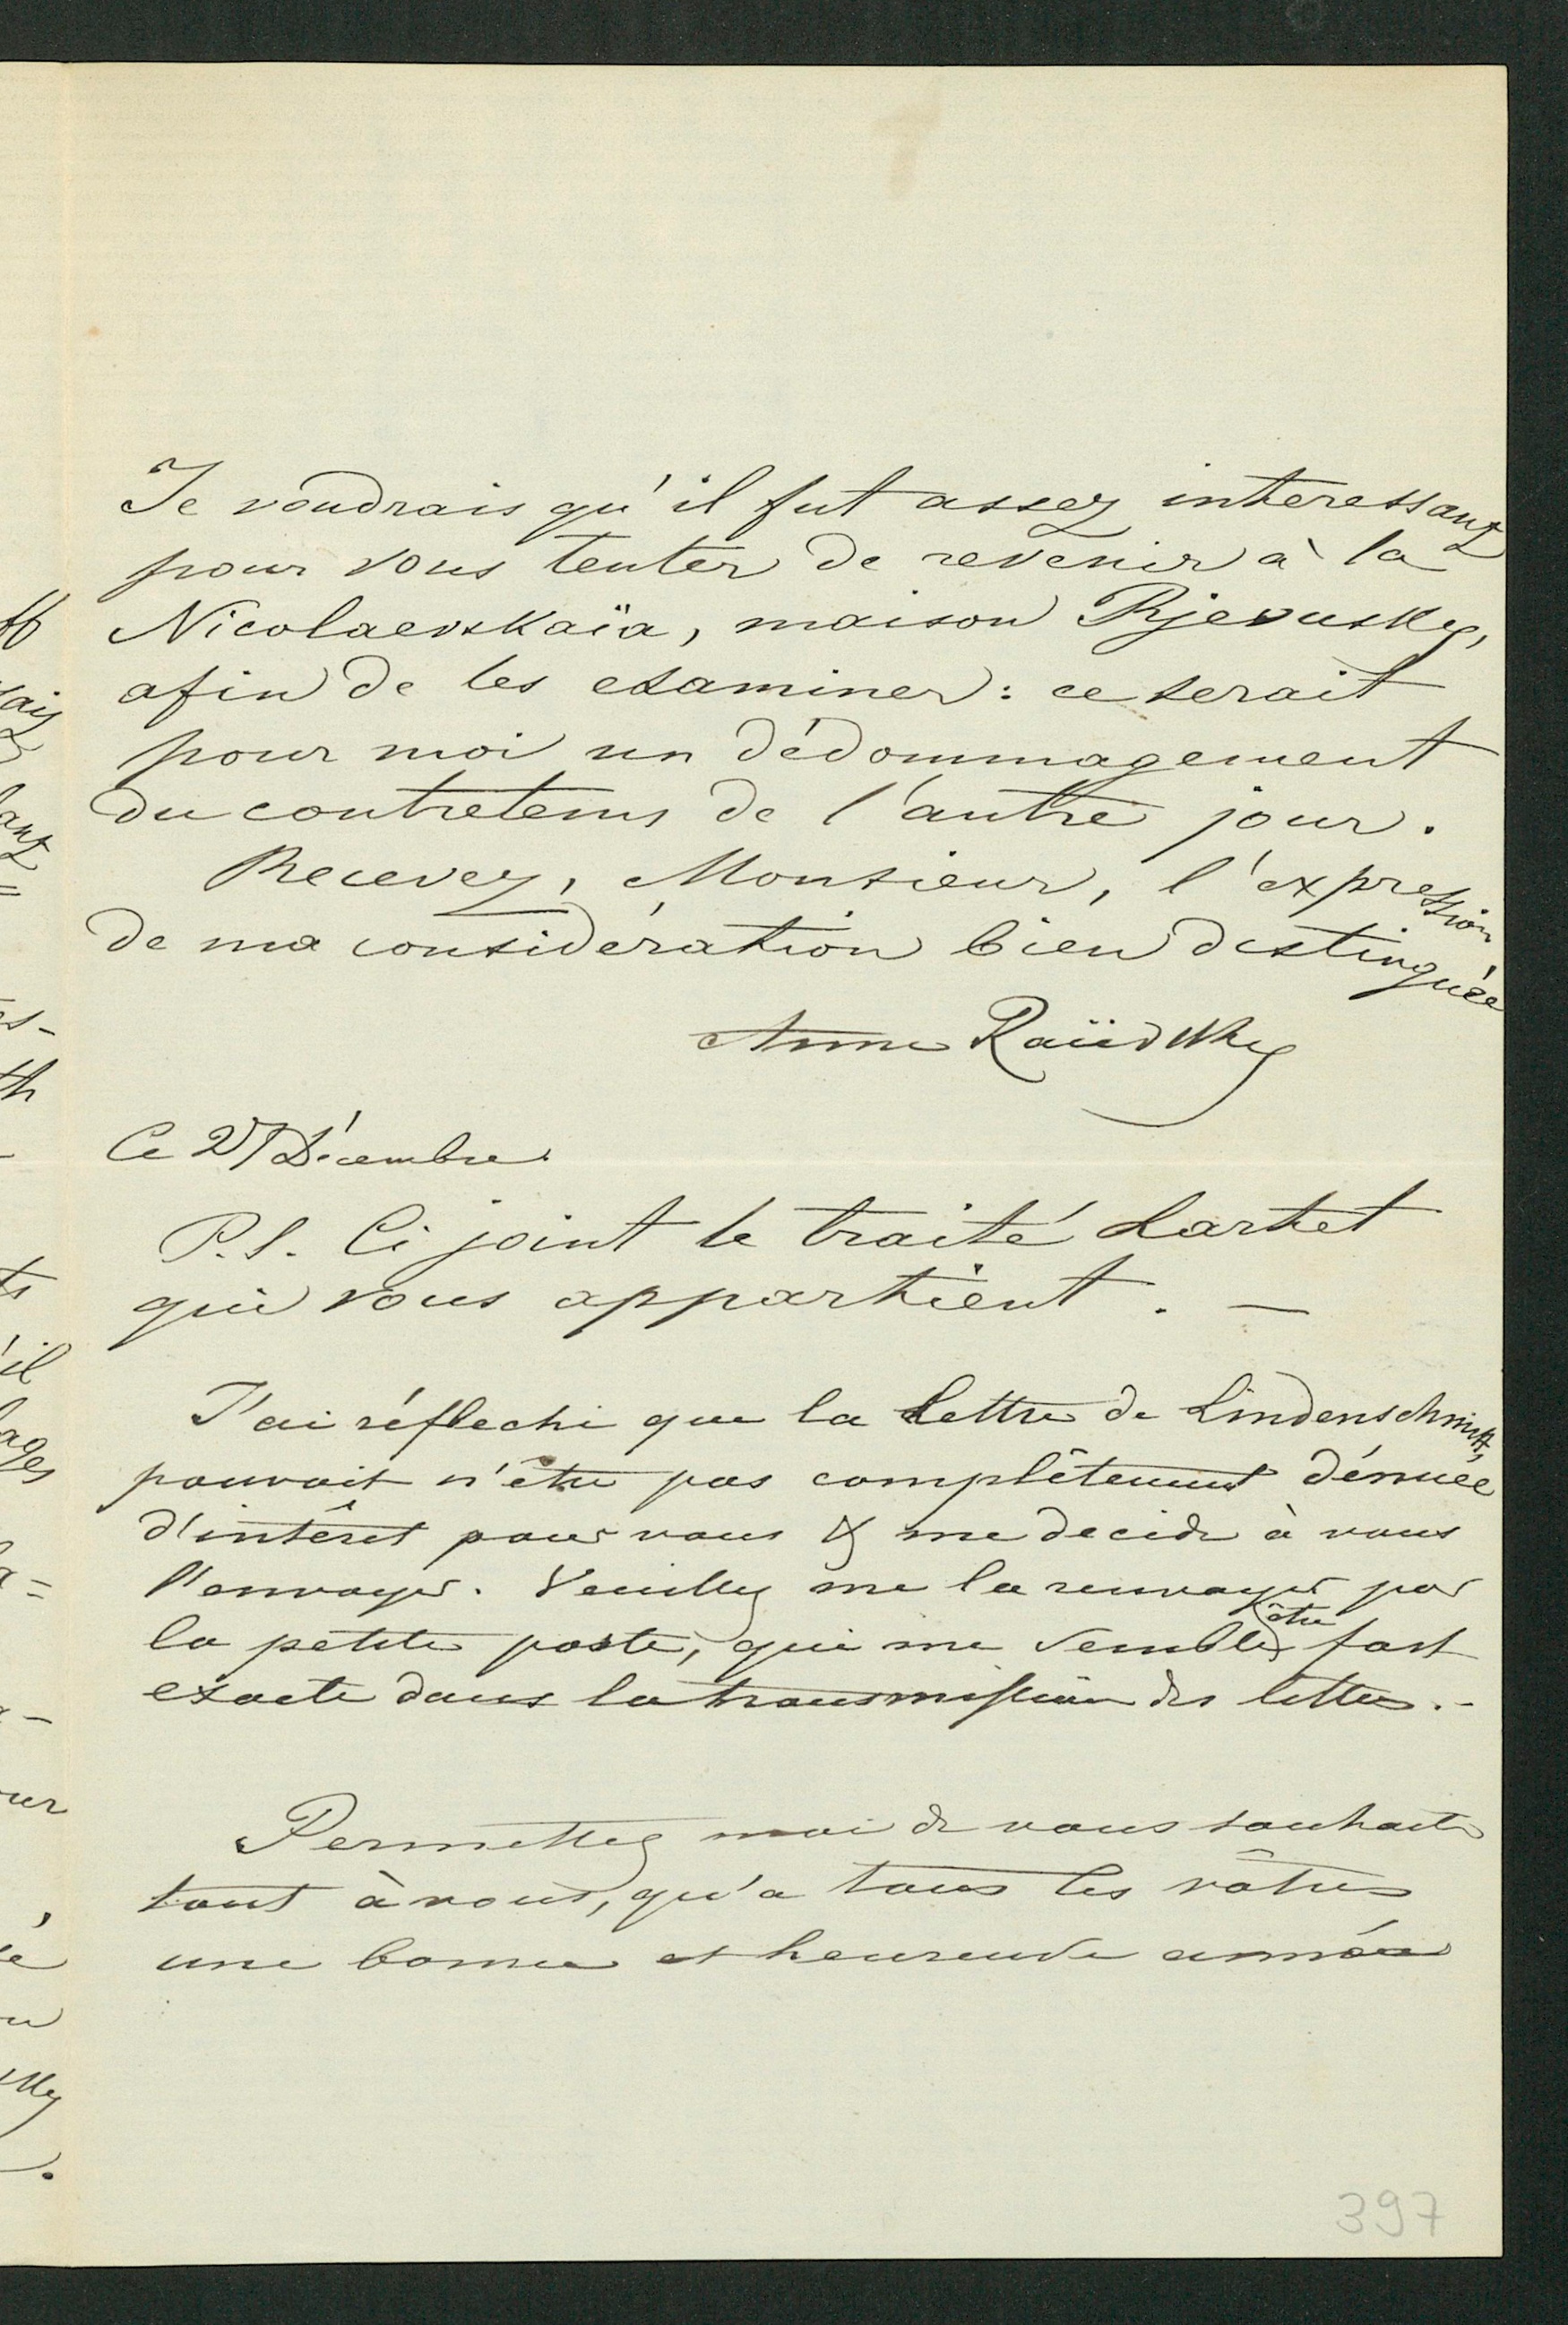 Je voudrais qu'il fut assez interessant
pour vous tenter de revenir à la
Nicolaevskaïa, maison Rjevusky,
afin de les examiner: ce serait
pour moi un dédommagement
du contretems de l'autre jour.
Recevez, Monsieur, l'expression
de ma considération bien distinguée
Anne
Ce 27 Décembre.
P.S. Ci joint le traité Lartet
qui vous appartient. —
J'ai réflechi que la lettre de Lindenschmitt,
pouvait n'être pas complêtement dénuée
d'intérêt pour vous & me decide à vous
l'envoyer. Veuillez me la renvoyer par
la petite poste, qui me semble être fort
exacte dans la transmission des lettres. -
Permettez moi de vous souhaiter
tant à vous, qu'a tous les vôtres
une bonne et heureuse année
397